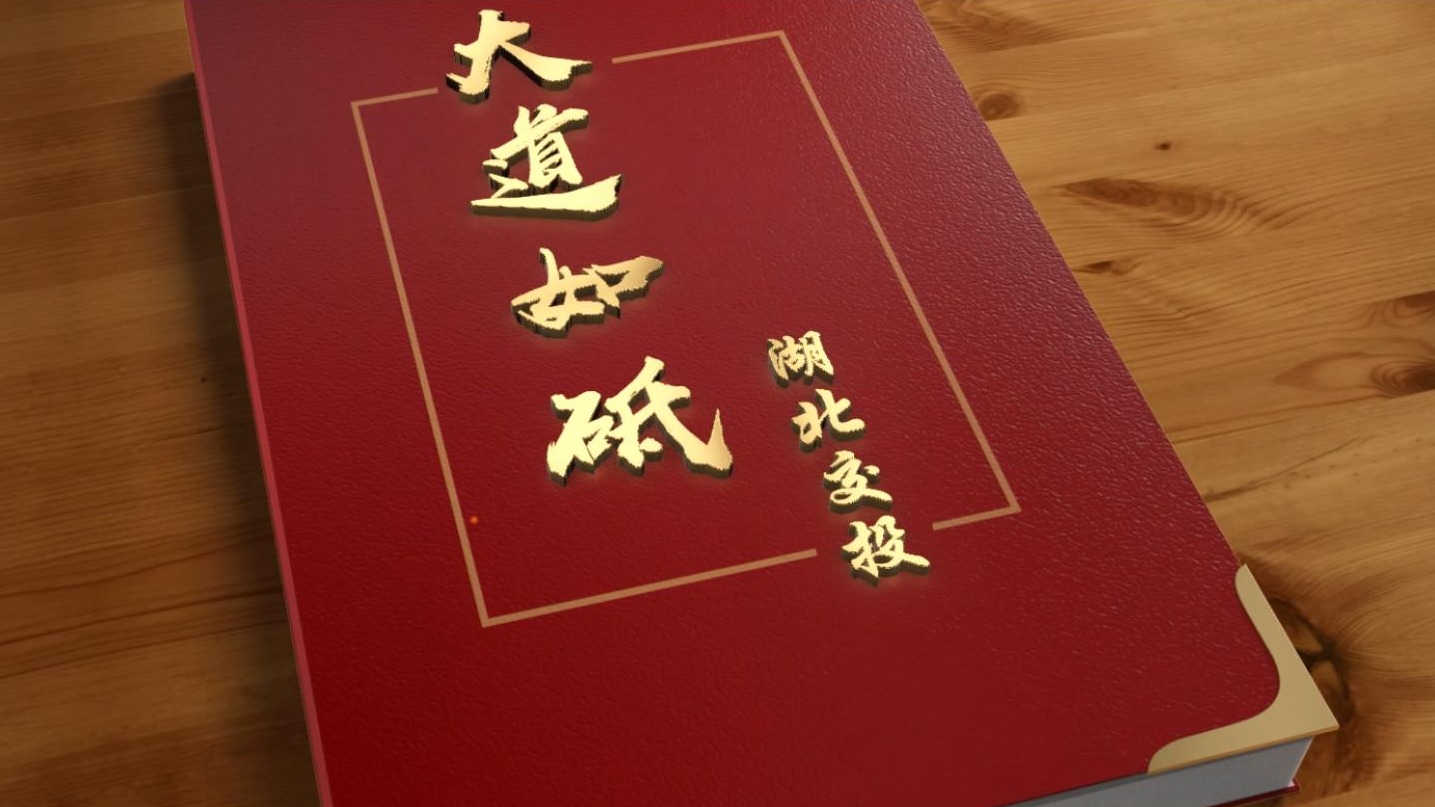 大道如砥
湖北交投